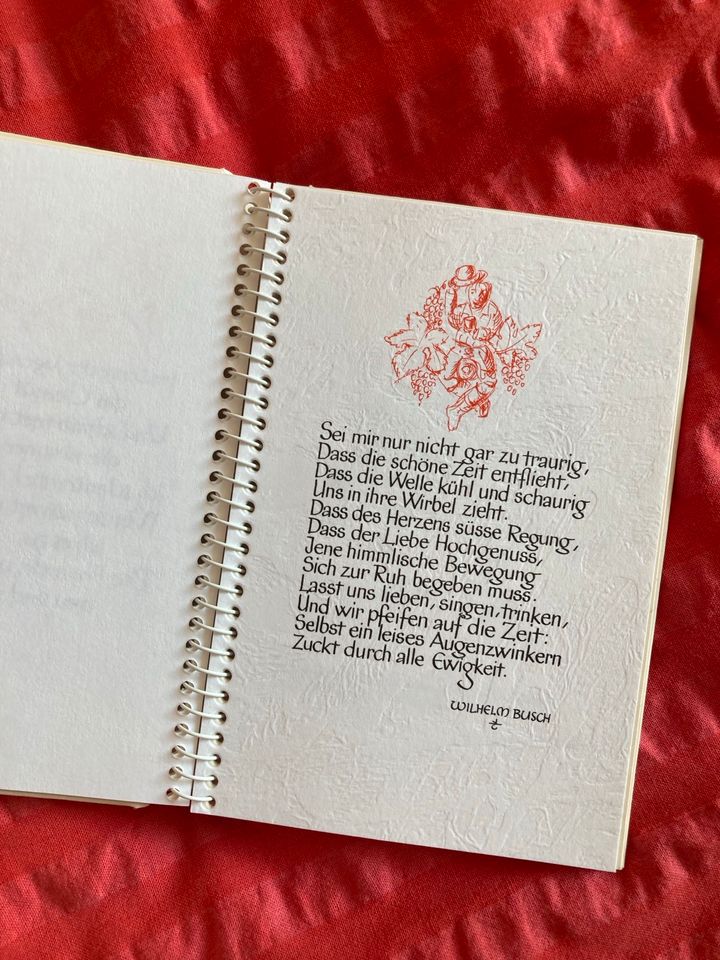 Sei mir nur nicht gar zu traurig,
Dass die schöne Zeit entflieht,
Dass die Welle kühl und schaurig
Uns in ihre Wirbel zieht.
Dass des Herzens süsse Regung,
Dass der Liebe Hochgenuss,
Jene himmlische Bewegung
Sich zur Ruh begeben muss.
Lasst uns lieben, singen, trinken,
Und wir pfeifen auf die Zeit:
Selbst ein leises Augenzwinkern
Zuckt durch alle Ewigkeit.
WILHELM BUSCH